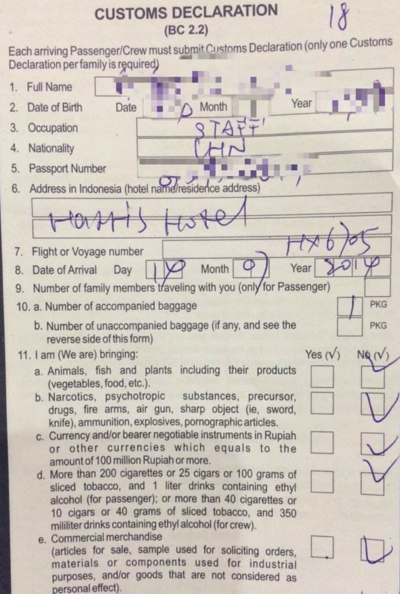 18
CUSTOMS DECLARATION
(BC 2.2)
Each arriving Passenger/Crew must submit Customs Declaration (only one Customs
Declaration per family is required)
1. Full Name
2. Date of Birth Date Month Year
3. Occupation STAFF
4. Nationality CHN
5. Passport Number
6. Address in Indonesia (hotel name/residence address)
Harris Hotel
7. Flight or Voyage number HX6705
8. Date of Arrival Day 14 Month 07 Year 2014
9. Number of family members traveling with you (only for Passenger)
10. a. Number of accompanied baggage 1 PKG
b. Number of unaccompanied baggage (if any, and see the PKG
reverse side of this form)
11. I am (We are) bringing: Yes (√) No (√)
a. Animals, fish and plants including their products
(vegetables, food, etc.).
b. Narcotics, psychotropic substances, precursor,
drugs, fire arms, air gun, sharp object (ie, sword,
knife), ammunition, explosives, pornographic articles.
c. Currency and/or bearer negotiable instruments in Rupiah
or other currencies which equals to the
amount of 100 million Rupiah or more.
d. More than 200 cigarettes or 25 cigars or 100 grams of
sliced tobacco, and 1 liter drinks containing ethyl
alcohol (for passenger); or more than 40 cigarettes or
10 cigars or 40 grams of sliced tobacco, and 350
mililiter drinks containing ethyl alcohol (for crew).
e. Commercial merchandise
(articles for sale, sample used for soliciting orders,
materials or components used for industrial
purposes, and/or goods that are not considered as
personal effect).